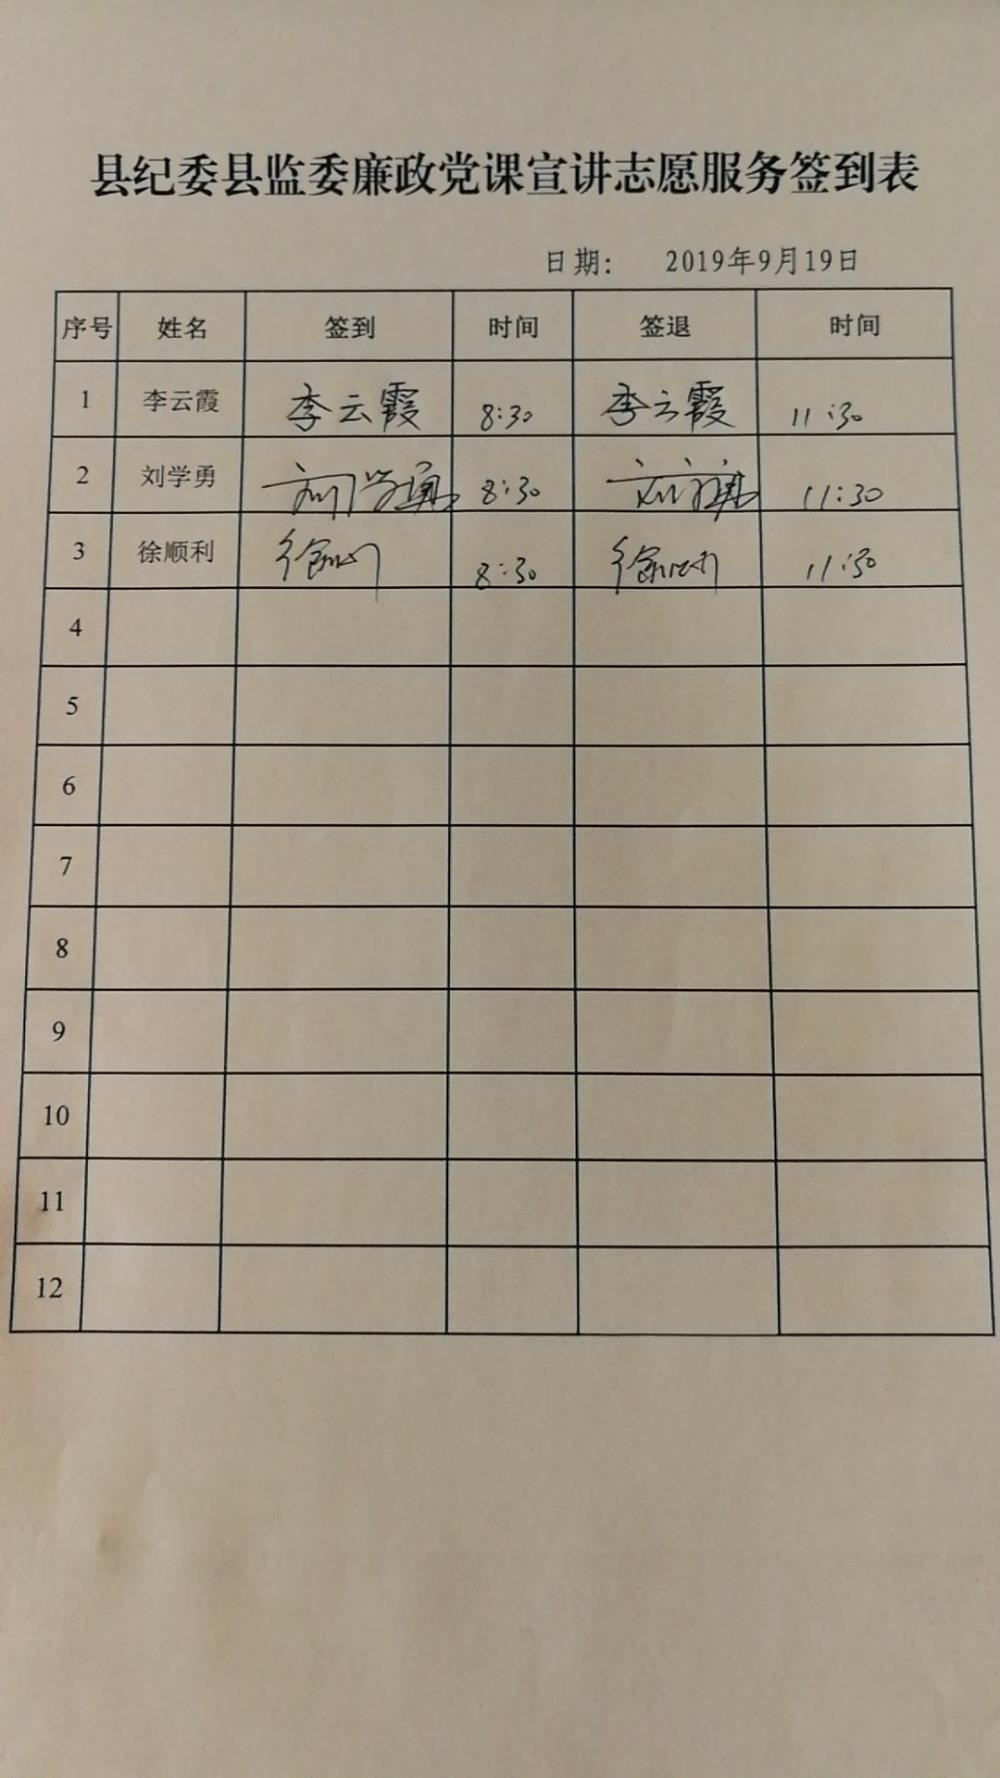 县纪委县监委廉政党课宣讲志愿服务签到表
日期： 2019年9月19日
序号 姓名 签到 时间 签退 时间
1 李云霞 李云霞 8:30 李云霞 11:30
2 刘学勇 刘学勇 8:30 刘学勇 11:30
3 徐顺利 徐顺利 8:30 徐顺利 11:30
4
5
6
7
8
9
10
11
12